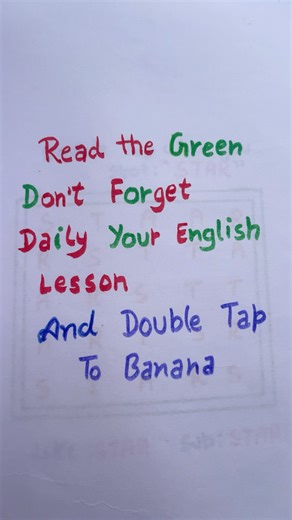 Read the Green
Don't Forget
Daily Your English
Lesson
And Double Tap
To Banana